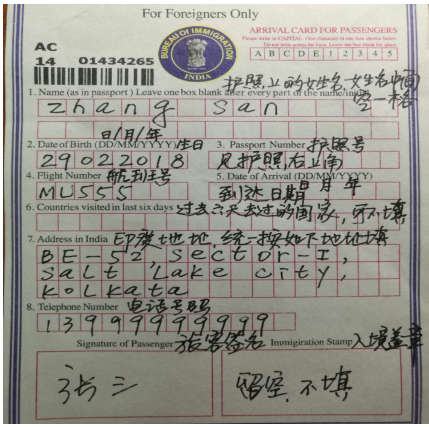 For Foreigners Only
ARRIVAL CARD FOR PASSENGERS
Please write in CAPITAL. One character in one box shown below:
Do not write across the lines. Leave one box blank for space.
A B C D E 1 2 3 4 5
AC
14 01434265
BUREAU OF IMMIGRATION
INDIA
护照上的姓名,姓名中间
空一格
1. Name (as in passport) Leave one box blank after every part of the name/initial
zhang san
日/月/年
2. Date of Birth (DD/MM/YYYY) 生日
3. Passport Number 护照号
29022018
见护照右上角
4. Flight Number 航班号
5. Date of Arrival (DD/MM/YYYY)
MU555
到达日期日月年
6. Countries visited in last six days 过去六天去过的国家,可不填
7. Address in India 印度地址,统一按如下地址填
BE-52, Sector-I,
Salt Lake city,
Kolkata
8. Telephone Number 电话号码
13999999999
Signature of Passenger 旅客签名
Immigration Stamp 入境盖章
张三
留空,不填